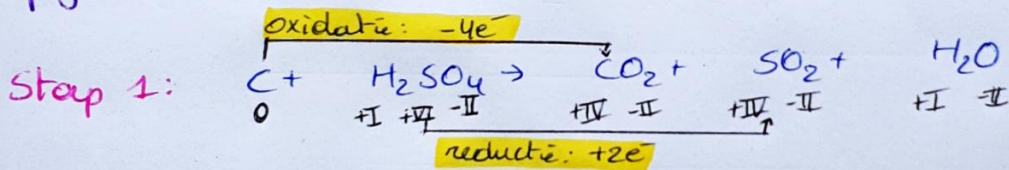 oxidatie: -4e⁻
Stap 1: C + H₂SO₄ → CO₂ + SO₂ + H₂O
0 +I +VI -II +IV -II +IV -II +I -II
reductie: +2e⁻